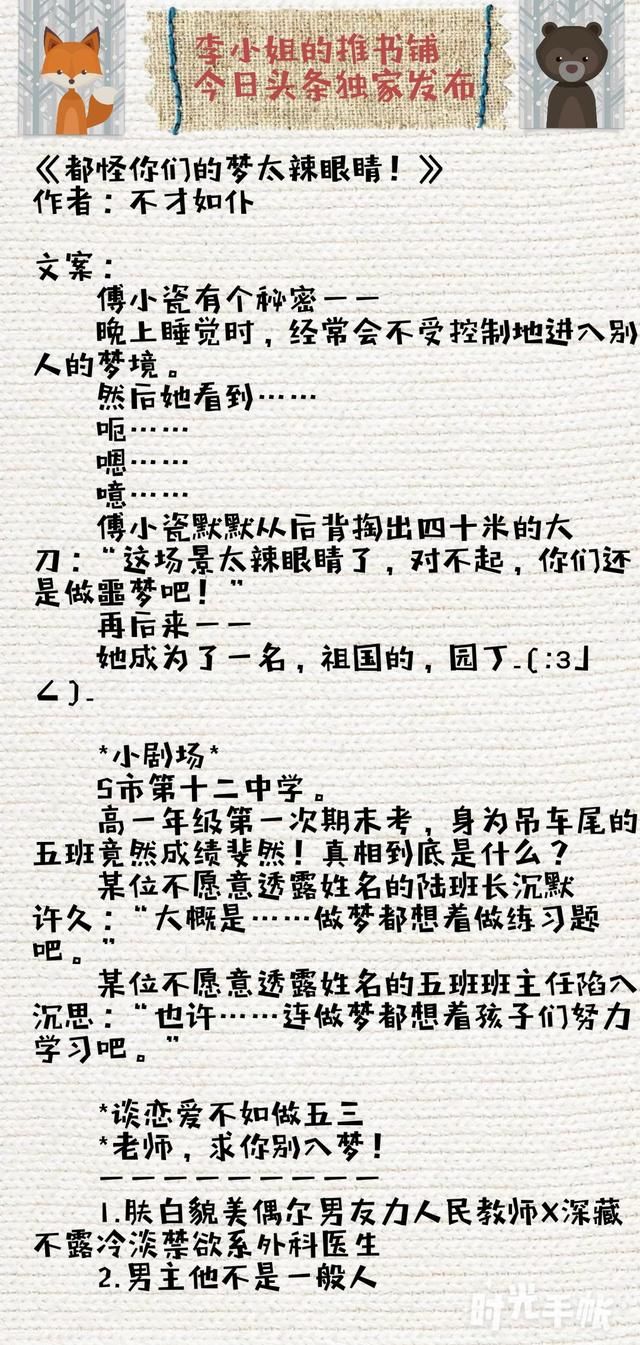 李小姐的推书铺
今日头条独家发布
《都怪你们的梦太辣眼睛！》
作者：不才如仆
文案：
傅小瓷有个秘密——
晚上睡觉时，经常会不受控制地进入别
人的梦境。
然后她看到……
呃……
嗯……
噫……
傅小瓷默默从后背掏出四十米的大
刀：“这场景太辣眼睛了，对不起，你们还
是做噩梦吧！”
再后来——
她成为了一名，祖国的，园丁_(:3」
∠)_
*小剧场*
S市第十二中学。
高一年级第一次期末考，身为吊车尾的
五班竟然成绩斐然！真相到底是什么？
某位不愿意透露姓名的陆班长沉默
许久：“大概是……做梦都想着做练习题
吧。”
某位不愿意透露姓名的五班班主任陷入
沉思：“也许……连做梦都想着孩子们努力
学习吧。”
*谈恋爱不如做五三
*老师，求你别入梦！
—————————
1.肤白貌美偶尔男友力人民教师X深藏
不露冷淡禁欲系外科医生
2.男主他不是一般人
时光手帐